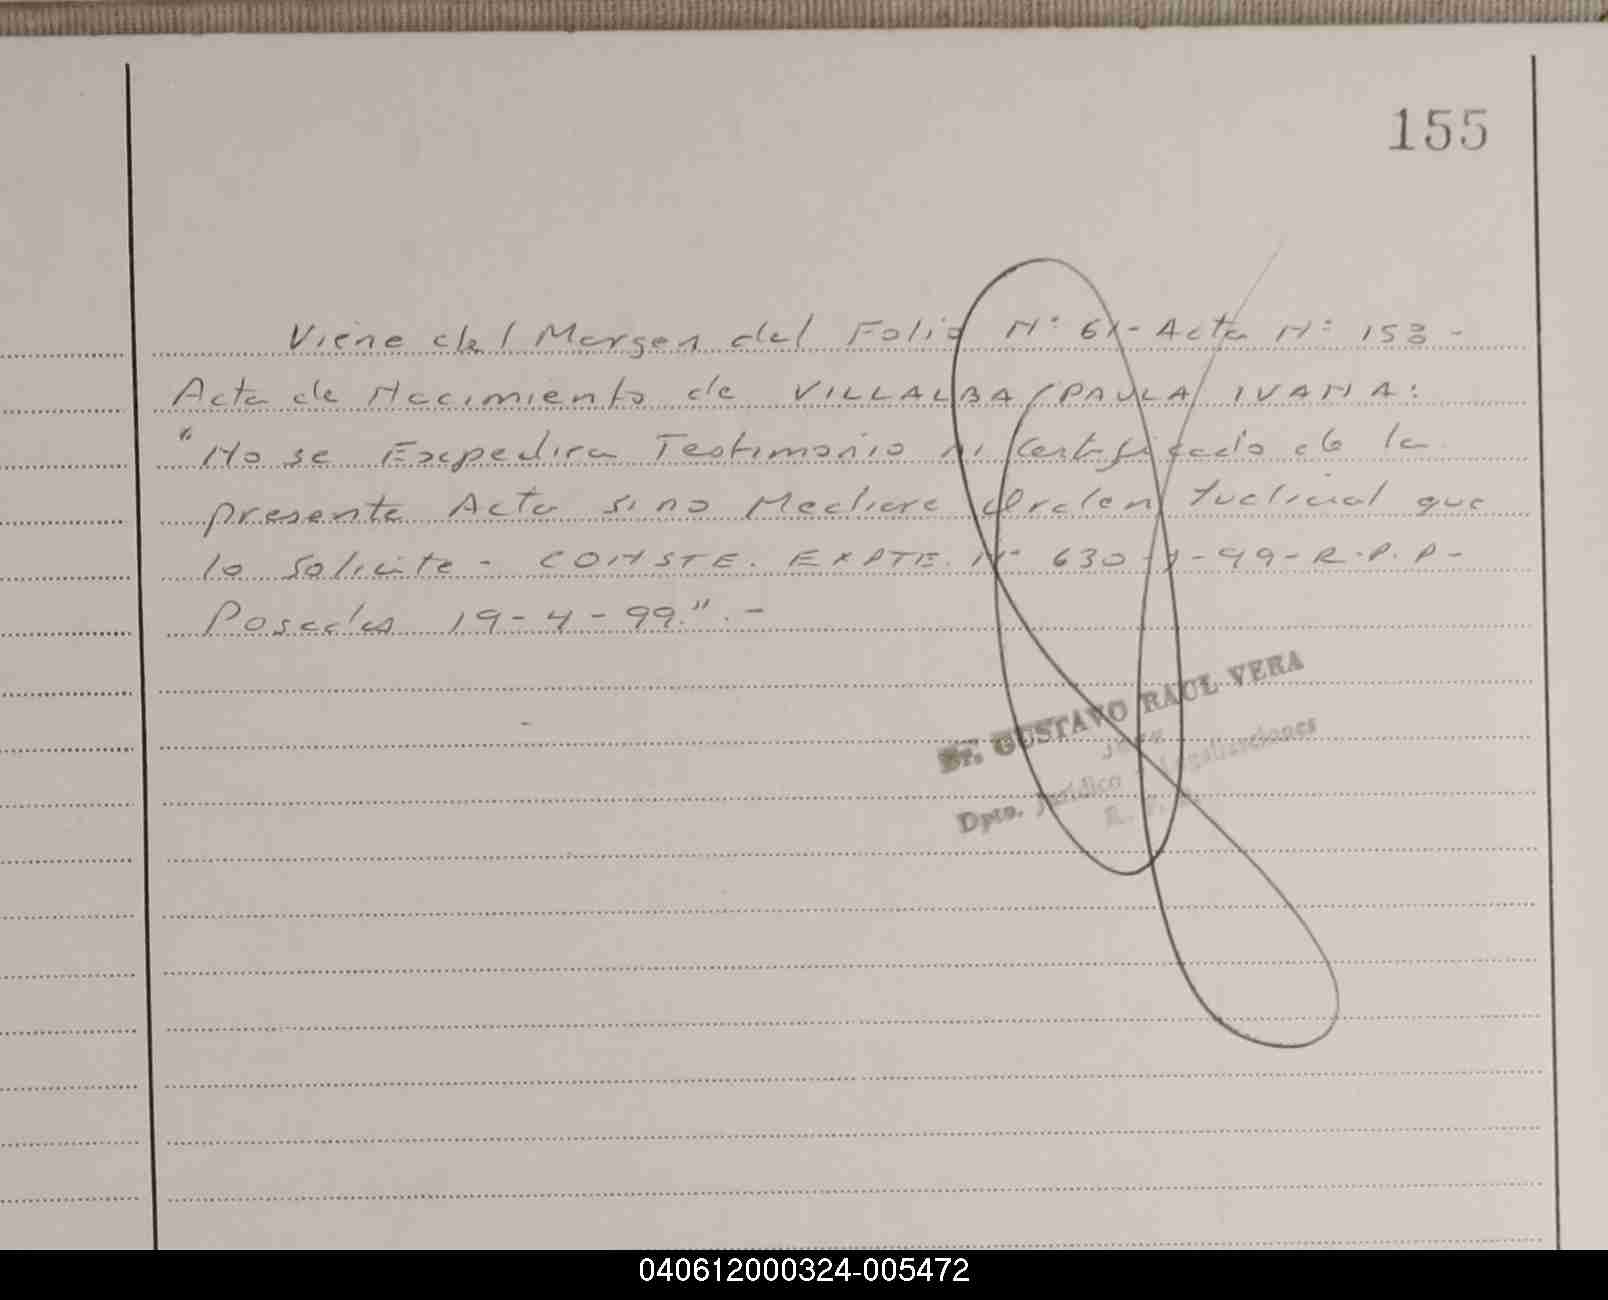 155
Viene del Margen del Folio Nº 61 - Acta Nº 153 -
Acta de Nacimiento de VILLALBA / PAULA IVANA:
"No se Expedira Testimonio ni Certificado de la
presente Acta si no Mediare Orden Judicial que
lo solicite - CONSTE. EXPTE. Nº 630 - 99 - R.P.P -
Posadas 19 - 4 - 99." . -
Sr. GUSTAVO RAUL VERA
Jefe
Dpto. Jurídico Legalizaciones
R. P.
040612000324-005472